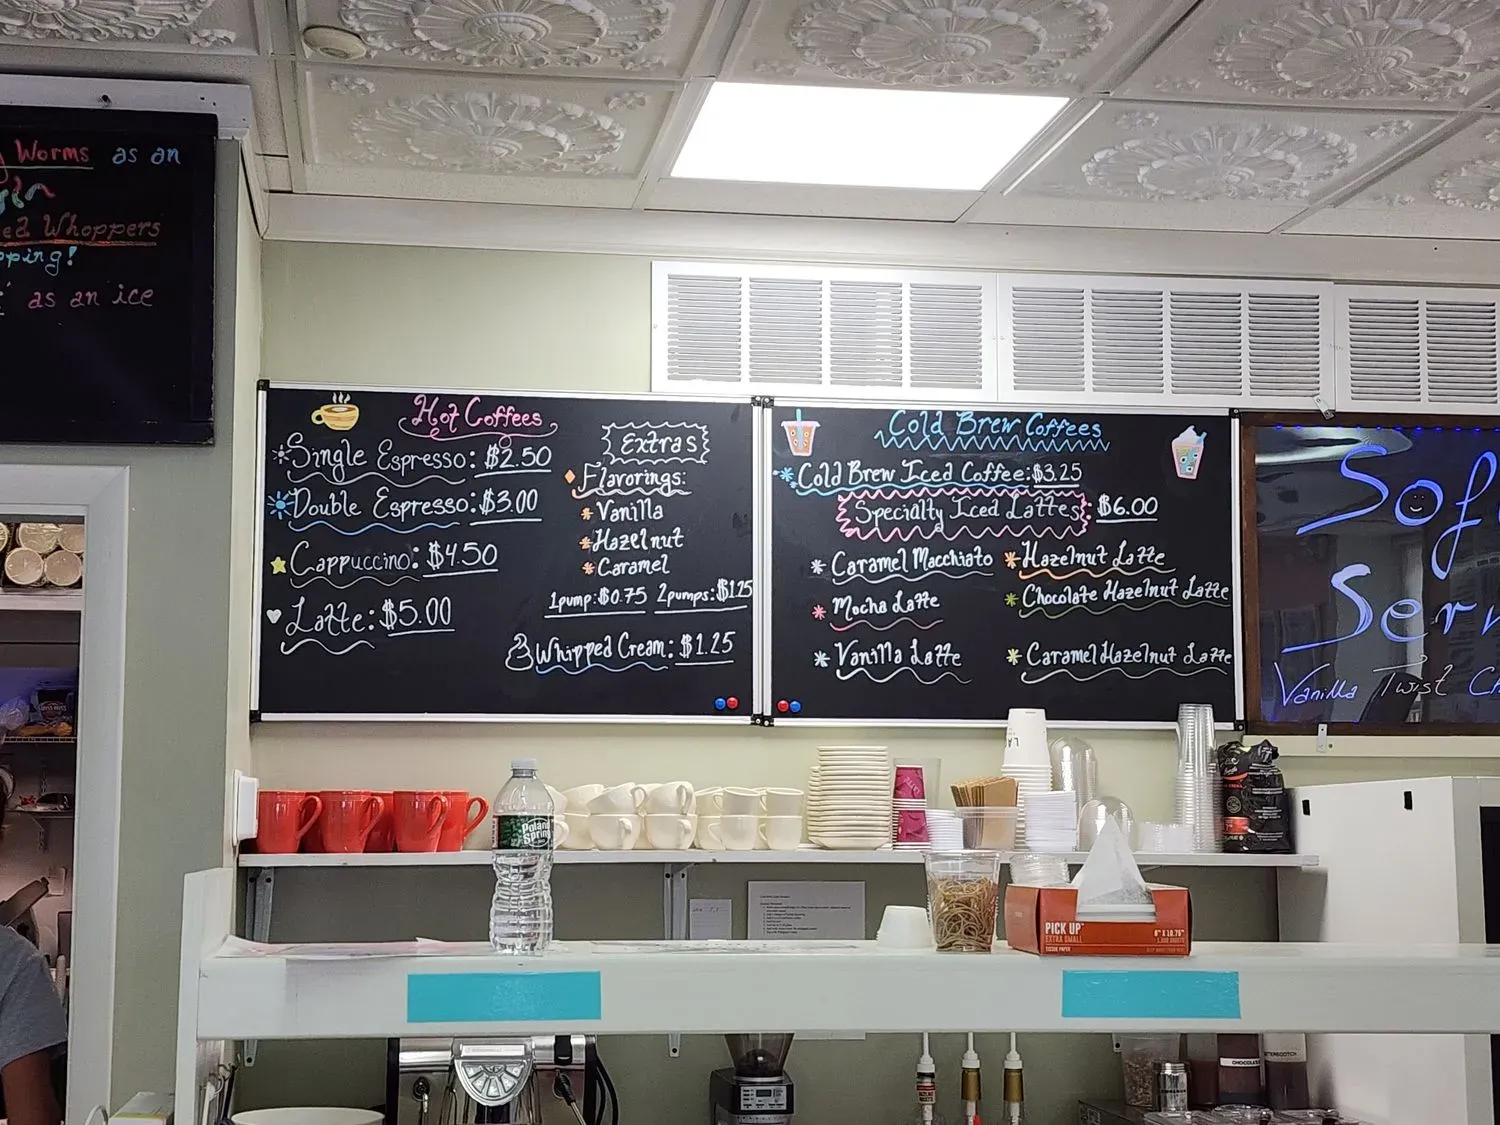 Worms as an
Whoppers
as an ice
Hot Coffees
Single Espresso: $2.50
Double Espresso: $3.00
Cappuccino: $4.50
Latte: $5.00
Extras
Flavorings:
Vanilla
Hazelnut
Caramel
1pump: $0.75 2pumps: $1.25
Whipped Cream: $1.25
Cold Brew Coffees
Cold Brew Iced Coffee: $3.25
Specialty Iced Lattes: $6.00
Caramel Macchiato
Mocha Latte
Vanilla Latte
Hazelnut Latte
Chocolate Hazelnut Latte
Caramel Hazelnut Latte
Sof
Ser
Vanilla Twist
Poland
Spring
PICK UP
EXTRA SMALL
TISSUE PAPER
6" X 10.75"